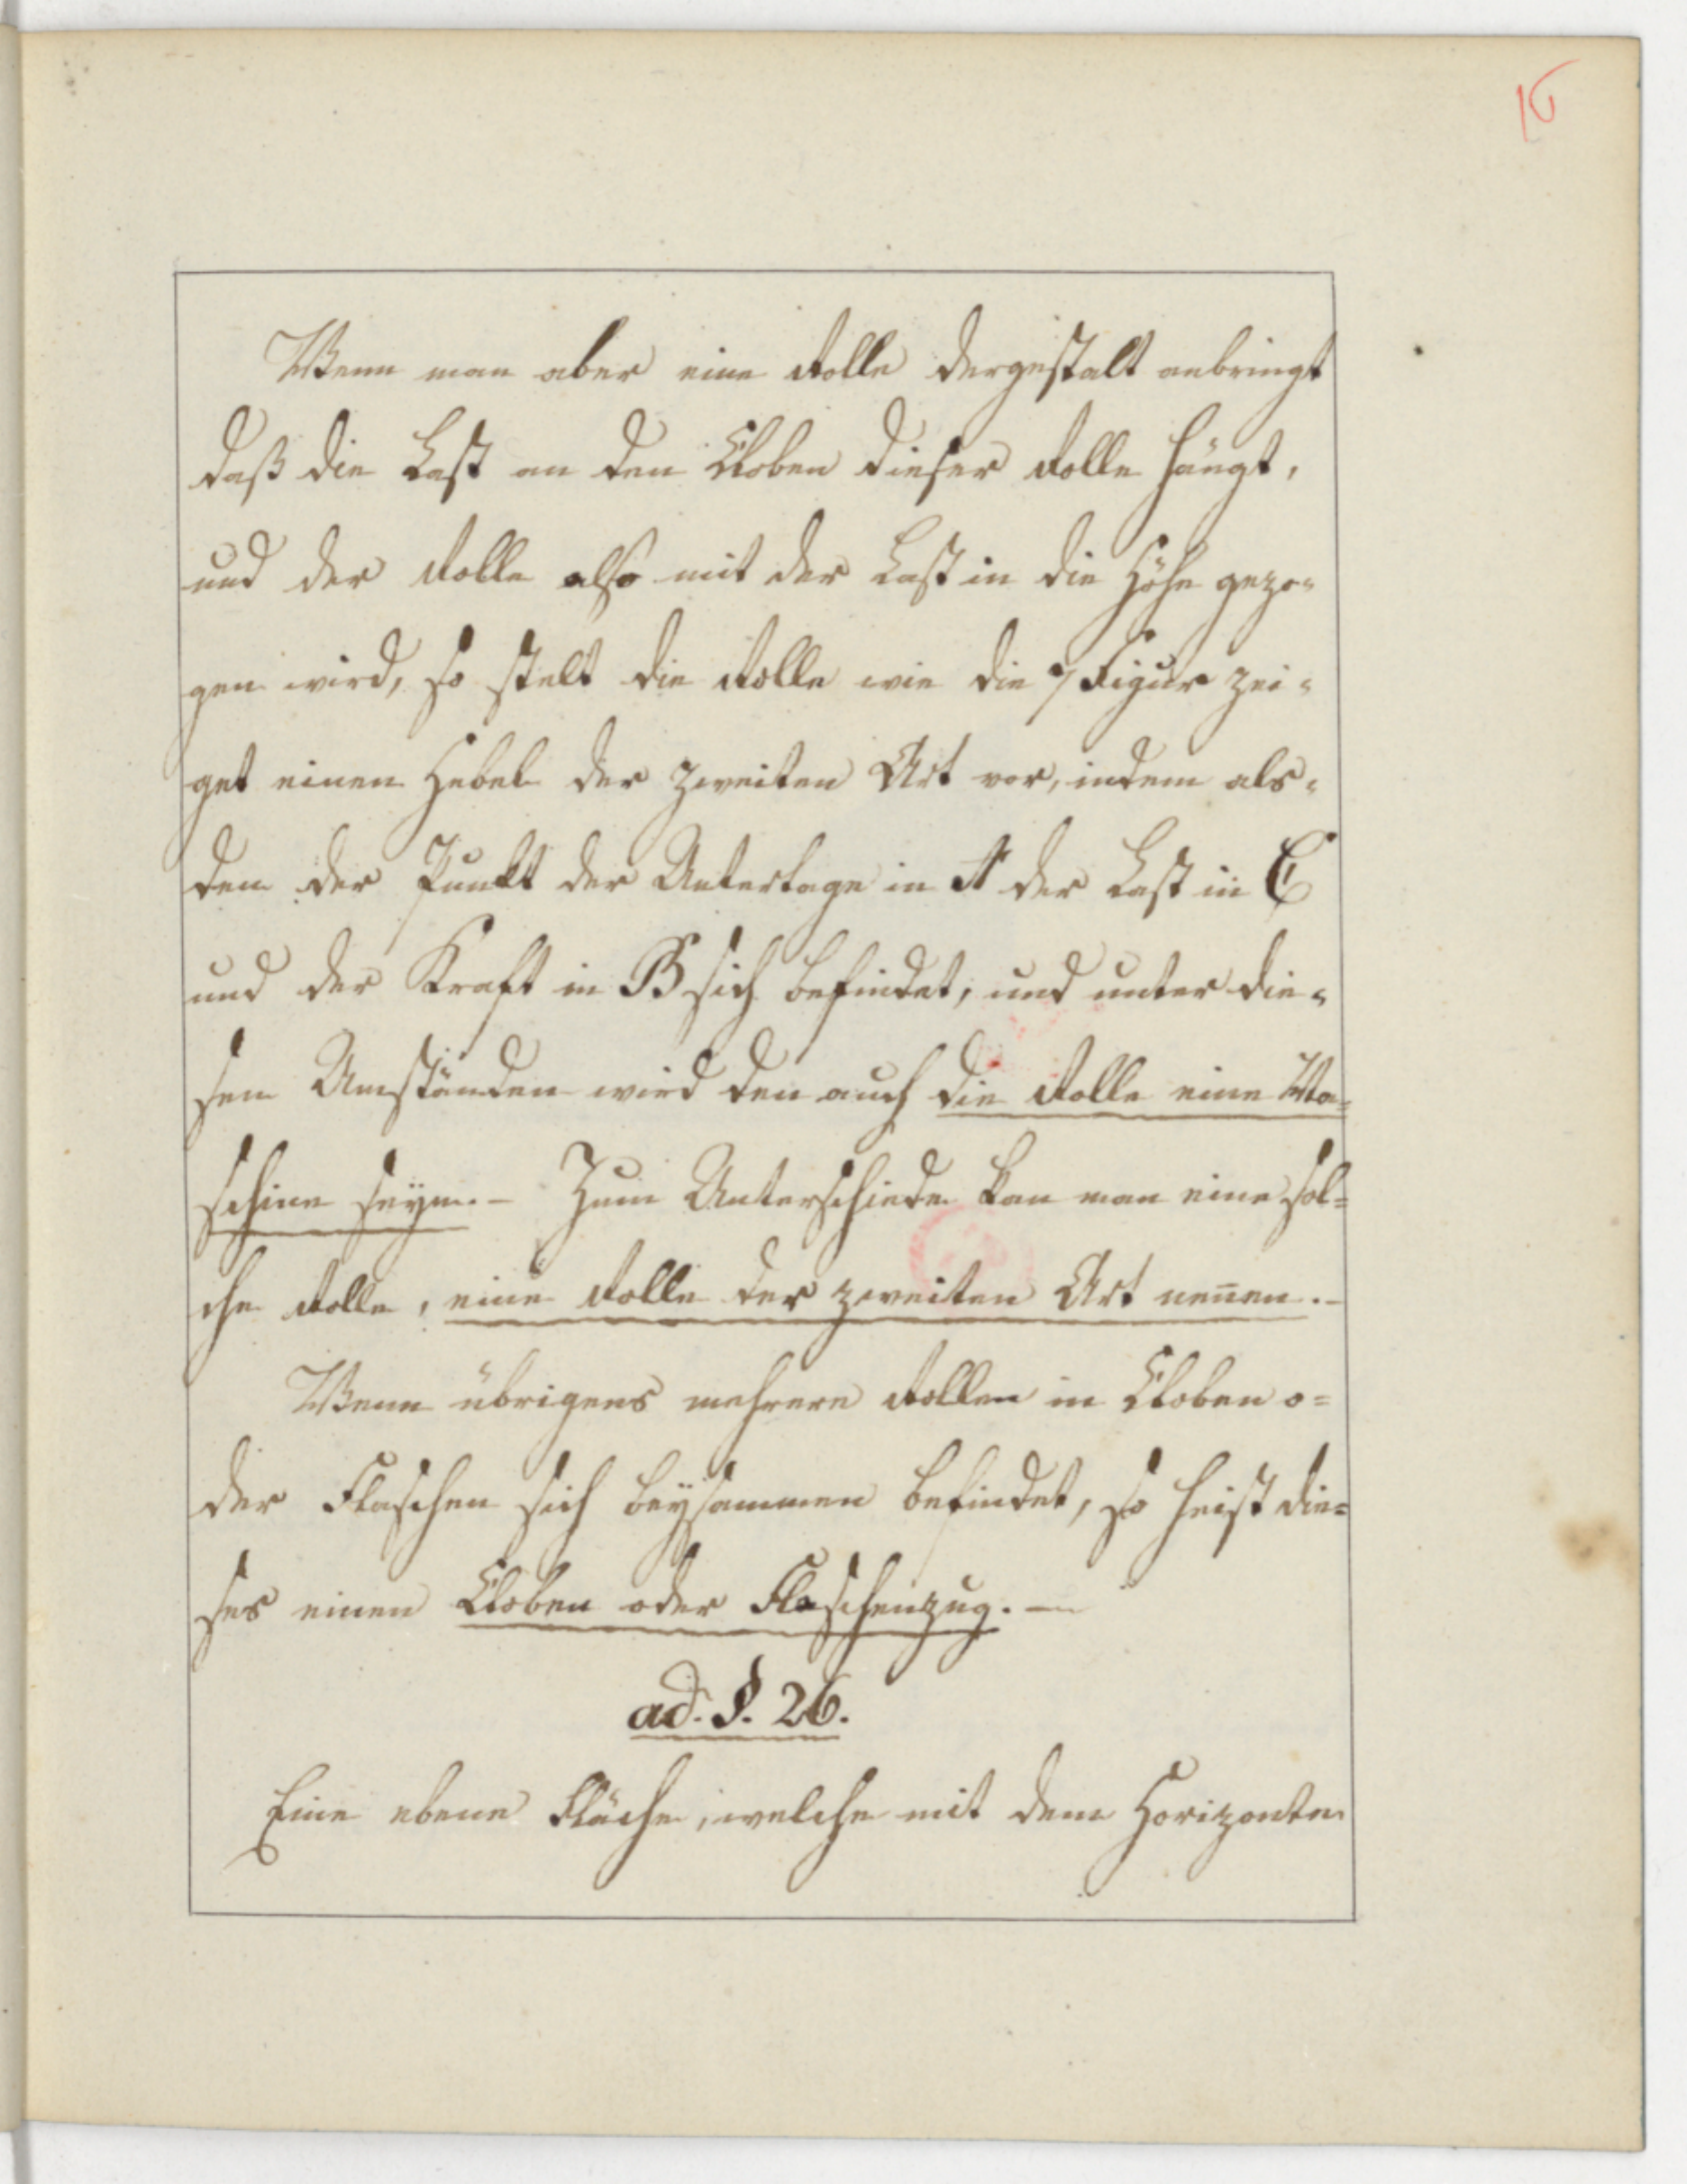 16
Wenn man aber eine Rolle dergestalt anbringt
daß die Last an den Kloben dieser Rolle hängt,
und der Rolle also mit der Last in die Höhe gezo-
gen wird, so stelt die Rolle wie die 7 Figur zei-
get einen Hebel der zweiten Art vor, indem als-
den der Punkt der Unterlage in A der Last in C
und der Kraft in B sich befindet, und unter die-
sen Umständen wird den auch die Rolle eine Ma-
schine seyn.- Zum Unterschiede kan man eine sol-
che Rolle, eine Rolle der zweiten Art nen̄en.-
Wenn übrigens mehrere Rollen in Kloben o-
der Flaschen sich beÿsammen befindet, so heist die-
ses einen Kloben oder Flaschenzug.-
ad. §. 26.
Eine ebene Fläche, welche mit dem Horizonte